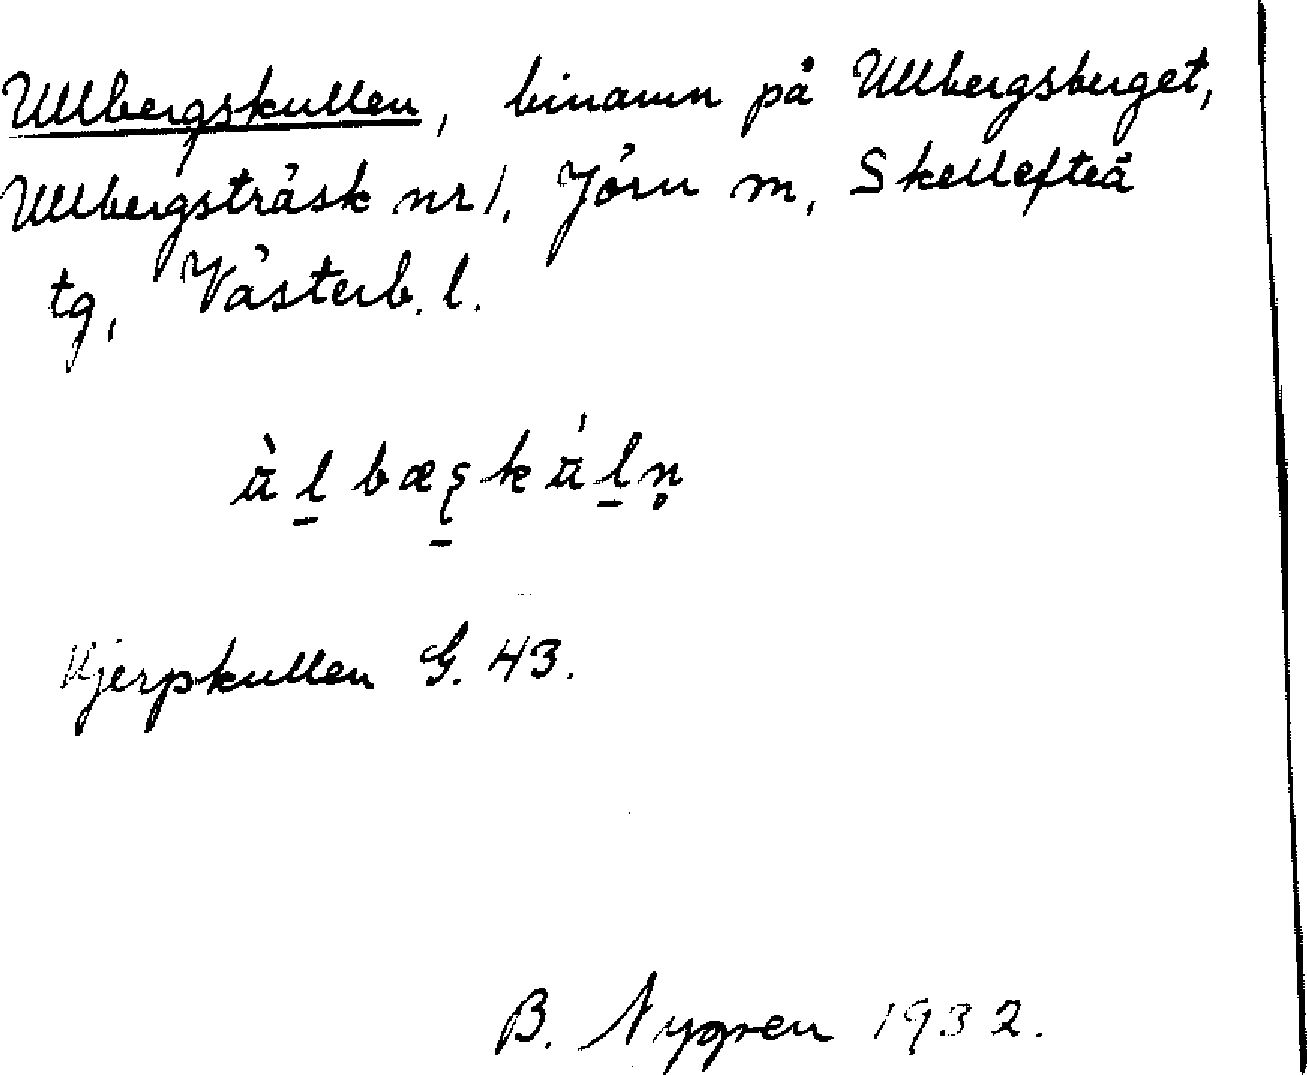 Ullbergskullen, binamn på Ullbergsberget,
Ullbergsträsk nr 1, Jörn m, Skellefteå
tg, Västerb. l.
Kjerpkullen G. 43.
B. Nygren 1932.